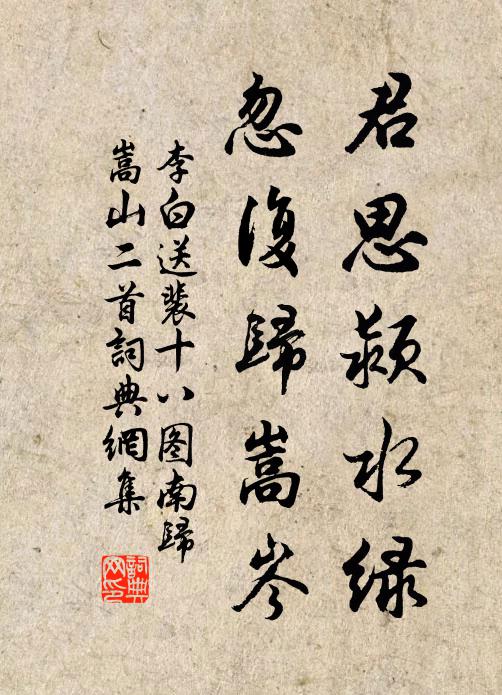 君思颍水绿
忽復歸嵩岑
李白送裴十八图南歸
嵩山二首詞典網集
詞典
网印